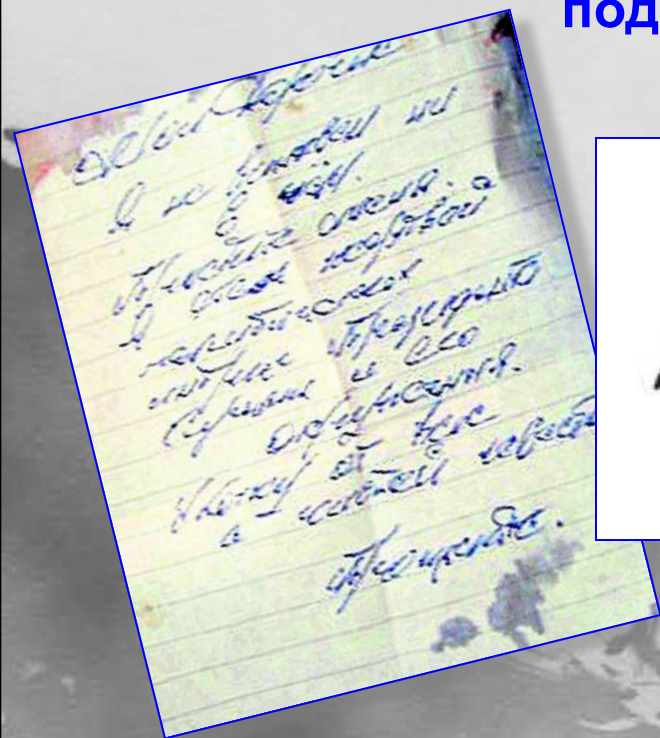 под
Мои дорогие
Я не виноват ни
в чём.
Простите меня.
Я стал жертвой
политических
интриг Президента
Кучмы и его
окружения.
Ухожу от вас
с чистой совест
Прощайте.